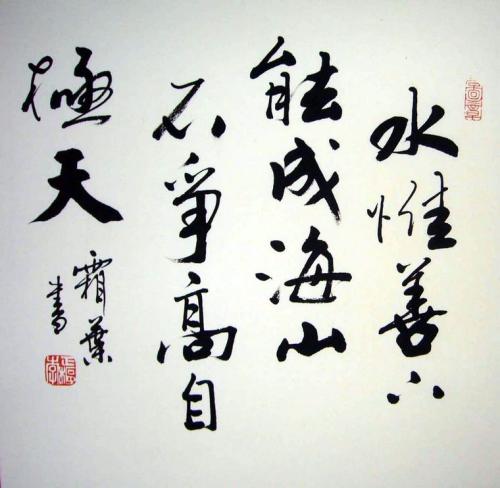 水惟善下
能成海山
不爭高自
極天
霜葉
書